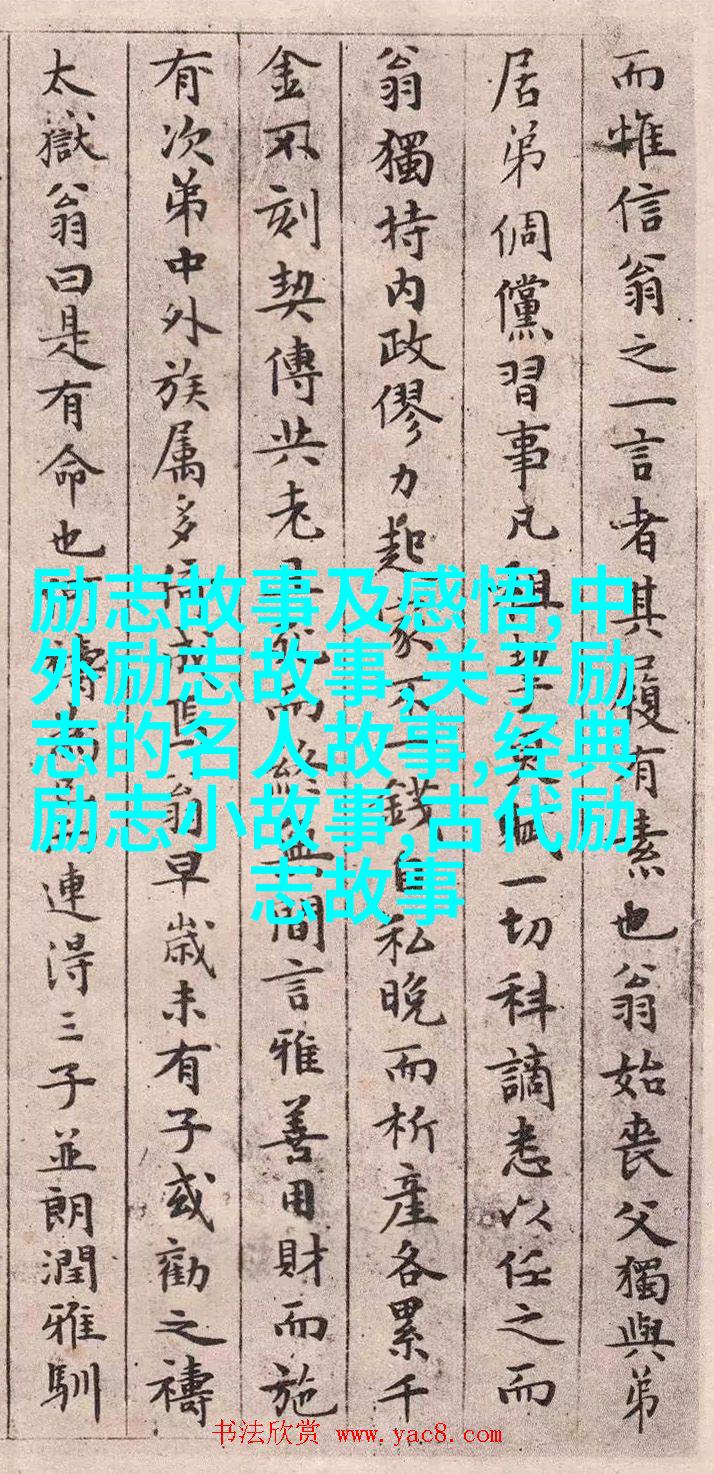 而惟信翁之一言者其履有素也翁始喪父獨與弟
居弟倜儻習事凡租挈更賦一切科謫悉以任之而
翁獨持内政僇力起家不一錢自私晚而析產各累千
金不刻契傳共老且死而終無間言雅善用財而施
有次第中外族属多倚成焉翁早歲未有子或勸之禱
太嶽翁曰是有命也可禱而已連得三子並朗潤雅馴
励志故事及感悟,中
外励志故事,关于励
志的名人故事,经典
励志小故事,古代励
志故事
书法欣赏 www.yac8.com